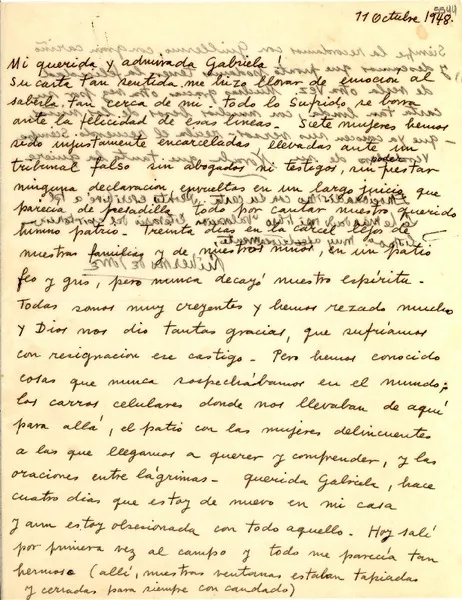 9944
11 Octubre 1948.
Mi querida y admirada Gabriela!
Su carta tan sentida me hizo llorar de emoción al
saberla tan cerca de mi. Todo lo sufrido se borra
ante la felicidad de esas lineas. Siete mujeres hemos
sido injustamente encarceladas, llevadas ante un
tribunal falso sin abogados ni testigos, sin poder prestar
ninguna declaración envueltas en un largo juicio que
parecia de pesadilla, todo por cantar nuestro querido
himno patrio. Treinta dias en la cárcel lejos de
nuestras familias y de nuestros niños, en un patio
feo y gris, pero nunca decayó nuestro espíritu.
Todas somos muy creyentes y hemos rezado mucho
y Dios nos dio tantas gracias, que sufríamos
con resignación ese castigo. Pero hemos conocido
cosas que nunca sospechábamos en el mundo;
los carros celulares donde nos llevaban de aquí
para allá, el patio con las mujeres delincuentes
a las que llegamos a querer y comprender, y las
oraciones entre lágrimas. querida Gabriela, hace
cuatro dias que estoy de nuevo en mi casa
y aun estoy obsesionada con todo aquello. Hoy salí
por primera vez al campo y todo me parecía tan
hermoso (allí, nuestras ventanas estaban tapiadas
y cerradas para siempre con candado)